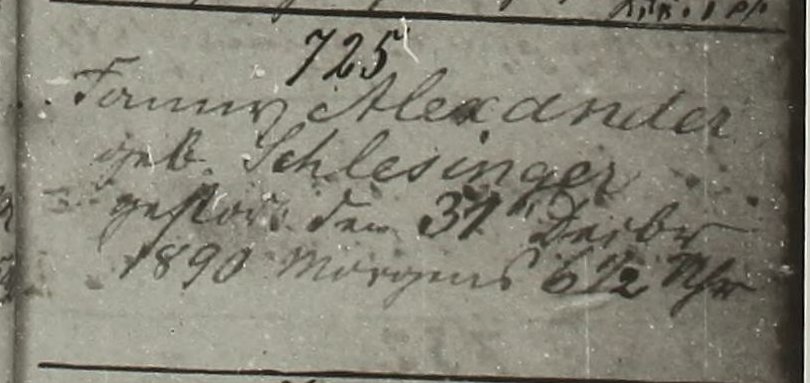 725
Fanny Alexander
geb. Schlesinger
gestor. den 31 Dezbr
1890 Morgens 6 1/2 Uhr